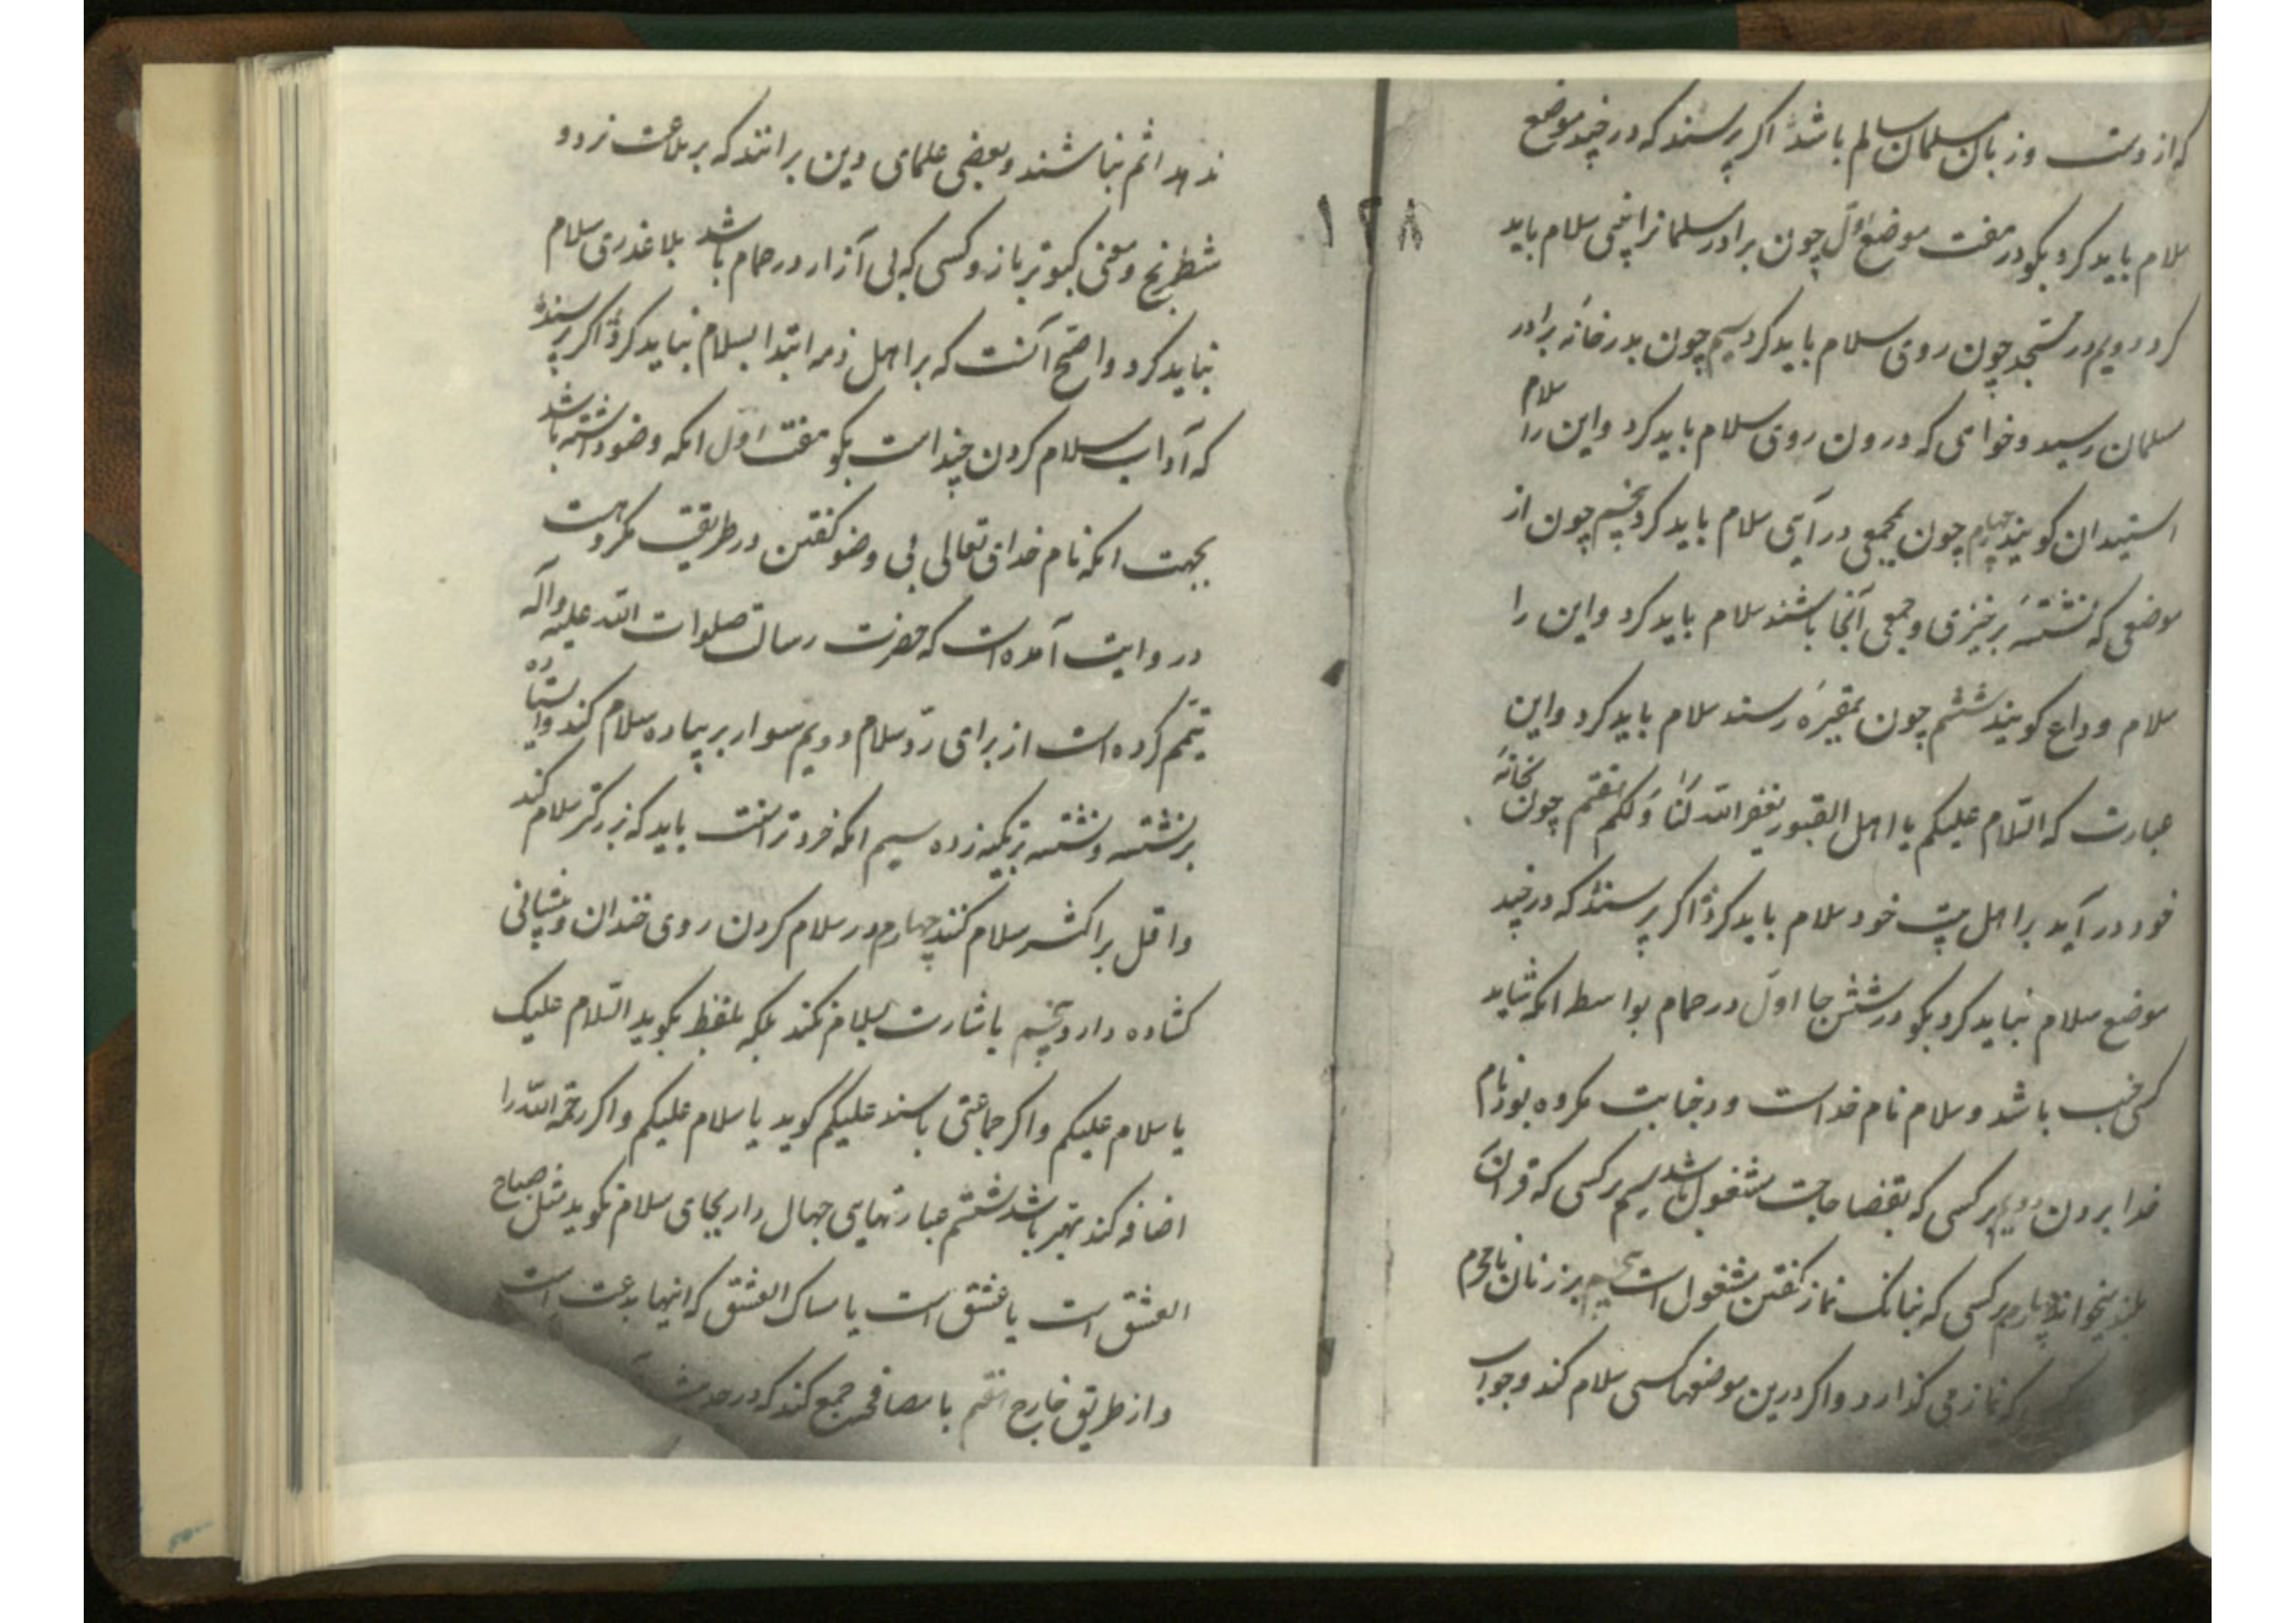 که از دست و زبان مسلمان سالم باشد اکر پرسند که در چند موضع
سلام باید کرد بکو در هفت موضع اول چون برادر مسلمانرا بینی سلام باید
کرد دویم در مسجد چون روی سلام باید کرد سیم چون بدر خانه برادر
مسلمان رسید و خواهی که درون روی سلام باید کرد و این را سلام
استیذان کویند چهارم چون بجمعی در آیی سلام باید کرد پنجم چون از
موضعی که نشستۀ برخیزی و جمعی آنجا باشند سلام باید کرد و این را
سلام وداع کویند ششم چون بمقبره رسند سلام باید کرد و این
عبارت که السّلام علیکم یا اهل القبور یغفر اللّه لَنٰا وَ لکم هفتم چون بخانۀ
خود در آید بر اهل بیت خود سلام باید کرد اکر پرسند که در چند
موضع سلام نباید کرد بکو در شش جا اوّل در حمام بواسطه انکه شاید
کسی جنب باشد و سلام نام خداست و در جنابت مکروه بود نام
خدا بردن دویم بر کسی که بقضا حاجت مشغول باشد سیم بر کسی که قرآن
بلند میخواند چهارم بر کسی که ببانک نماز کفتن مشغول است پنجم بر زنان نامحرم
که نماز می کذارد و اکر درین موضعها کسی سلام کند و جواب
۱۲۸
ندهد اثم نباشند و بعضی علمای دین برانند که بر ملاعب نرد و
شطرنج و مغنی و کبوتر باز و کسی که بی آزار در حمام باشد بلا عذری سلام
نباید کرد و اصح آنست که بر اهل ذمه ابتدا بسلام نباید کرد اکر پرسند
که آداب سلام کردن چند است بکو هفت اوّل انکه وضو داشته باشد
بجهت انکه نام خدای تعالی بی وضو کفتن در طریقت مکروهست
در روایت آمده است که حضرت رسالت صلوات اللّه علیه و آله
تیمّم کرده است از برای ردّ سلام دویم سوار بر پیاده سلام کند و ایستاده
بر نشسته و نشسته بر تکیه زده سیم انکه خردتر است باید که بر بزرکتر سلام کند
و اقل بر اکثر سلام کنند چهارم در سلام کردن روی خندان و پیشانی
کشاده دارد پنجم باشارت سلام نکند بلکه بلفظ بکوید السّلام علیک
یا سلام علیکم و اکر جماعتی باسند علیکم کوید یا سلام علیکم و اکر رحمة اللّه را
اضافه کند بهتر باشد ششم عبارتهای جهال را بجای سلام نکوید مثل صباح
العشق است یا عشق است یا مساک العشق که اینها بدعت است
و از طریق خارج هفتم با مصافحت جمع کند که در حدیث